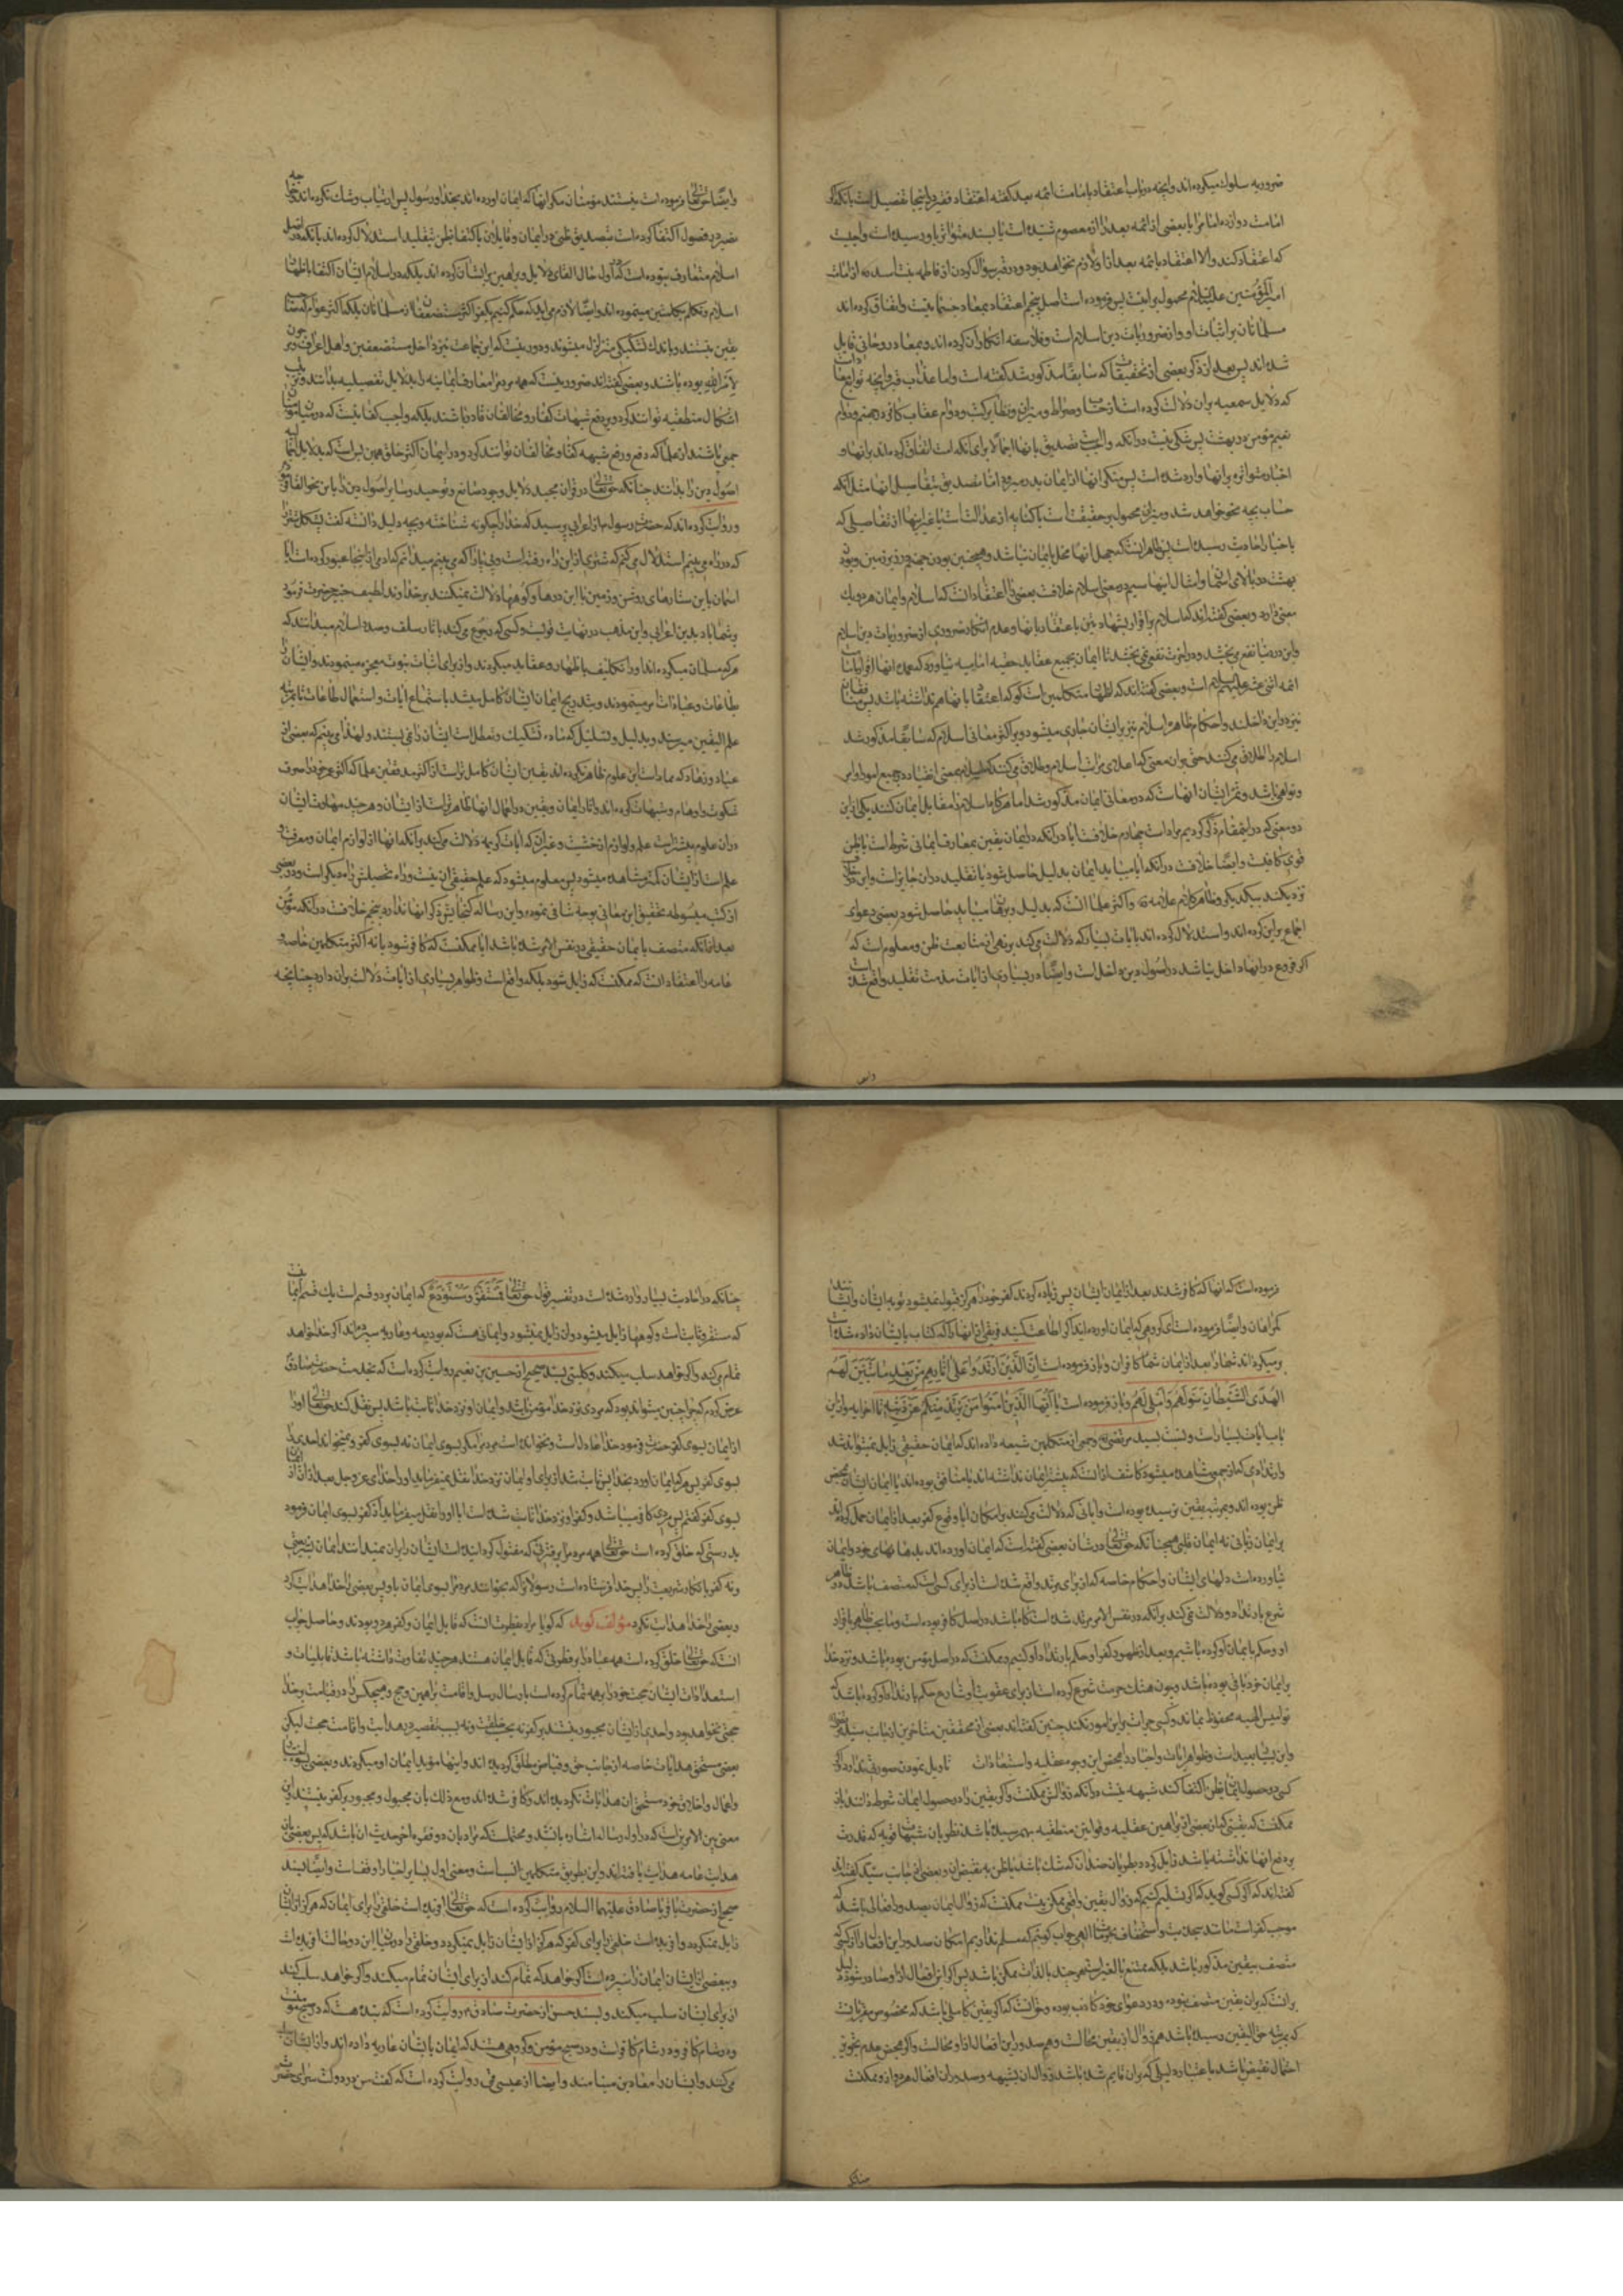 ضروریه سلوک میکرده‌اند وانچه در باب اعتقاد بامامت ائمه بعد کفته اعتقاد فقیر در اینجا تفصیل است بانکه اکر
امامت دوازده امام را یا بعضی از ائمه بعد را از معصوم شنیده است یا بسند متواتر باو رسیده است واجبست
که اعتقاد کند والا اعتقاد بائمه بعد از او لازم نخواهد بود و در قبر سؤال کردن از فاطمه بنت اسد از امامت
امیرالمؤمنین علیه‌السلام محمول براینست پس فرموده است اصل پنجم اعتقاد بمعاد جسمانیست واتفاق کرده‌اند
مسلمانان بر اثبات او و از ضروریات دین اسلام است وفلاسفه انکار آن کرده‌اند وبمعاد روحانی قایل
شده‌اند پس بعد از ذکر بعضی از تحقیقات که سابقا مذکور شد کفته است واما عذاب قبر وانچه توابع معاد است
که دلایل سمعیه بران دلالت کرده است از حساب وصراط ومیزان وتطایر کتب ودوام عقاب کافر در جهنم ودوام
نعیم مؤمن در بهشت پس شکی نیست در آنکه واجبست تصدیق بانها اجمالا برای آنکه امت اتفاق کرده‌اند برانها و
اخبار متواتره برانها وارد شده است پس منکر انها از ایمان بدر میرود اما تصدیق بتفاصیل انها مثل آنکه
حساب بچه نحو خواهد شد ومیزان محمول بر حقیقت است یا کنایه از عدالتست یا غیر اینها از تفاصیلی که
باخبار احاد بثبوت رسیده است پس ظاهر آنست که جهل انها مخل بایمان نباشد وهمچنین بودن جهنم در زیر زمین وبودن
بهشت در بالای آسمانها وامثال اینها سیم در معنی اسلام خلافست بعضی را اعتقاد آنست که اسلام وایمان هر دو یک
معنی دارد وبعضی کفته‌اند که اسلام اقرار بشهادتین با اعتقاد بانها وعدم انکار ضروری از ضروریات دین اسلام
واین در دنیا نفع می‌بخشد ودر آخرت نفع نمی‌بخشد تا ایمان بجمیع عقاید حقه امامیه نیاورد که عمده انها اقرار بامامت
ائمه اثنی عشر علیهم السلام است وبعضی کفته‌اند که اظهار متکلمین است کو که اعتقاد بانها هم نداشته باشد پس منافقان
نیز در این داخلند واحکام ظاهر اسلام نیز بر ایشان جاری میشود وبر اکثر معانی اسلام که سابقا مذکور شد
اسلام را اطلاق می‌کنند حتی بران معنی که اعلای مراتب اسلام وطلاق می‌کنند که اسلام بمعنی انقیاد در جمیع اوامر
ونواهی باشد وثمرات ایشان انهاست که در معانی ایمان مذکور شد اما هرکاه اسلام را مقابل ایمان کنند یکی از این
دو معنی که در اینمقام ذکر کردیم مراد است چهارم خلافست ایا در آنکه در ایمان یقین بمعارف ایمانی شرط است یا ظن
قوی کافیست وایضا خلافست در آنکه ایا میباید ایمان بدلیل حاصل شود یا تقلید در ان جایز است واین دو خلاف
نزدیکند بیکدیکر وظاهر کلام علامه ره واکثر علما آنست که بدلیل وبرهان میباید حاصل شود وبعضی دعوای
اجماع بر این کرده‌اند واستدلال کرده‌اند بایات بسیار که دلالت می‌کند بر نهی از متابعت ظن ومعلوم است که
اکر فروع در انها داخل نباشد در اصول دین داخل است وایضا در بسیاری از ایات مذمت تقلید واقع شده است
وایضا
وایضا حق‌تعالی فرموده است نیستند مؤمنان مکر انها که ایمان اورده‌اند بخدا ورسول پس ارتیاب وشک نکرده‌اند
اسلام متعارف نبوده است که در اول حال القای دلایل وبراهین بر ایشان کرده‌اند بلکه در اسلام ایشان اکتفا باظهار
اسلام وتکلم بکلمتین مینموده‌اند وایضا لازم می‌اید که حکم کنیم بکفر اکثر مستضعفان از مسلمانان بلکه اکثر عوام که
یقین نیستند وباندک تشکیکی متزلزل میشوند ودور نیست که این جماعت نیز داخل مستضعفین واهل اعراف
لامرالله بوده باشند وبعضی کفته‌اند ضرور نیست که همه مردم معارف ایمانیه را بدلایل تفصیلیه بدانند
اشکال منطقیه توانند کرد وبر دفع شبهات کفار ومخالفان قادر باشند بلکه واجب کفائیست که در میان مؤمنان
جمعی باشند از علما که دفع ورفع شبهه کفار ومخالفان توانند کرد ودر ایمان اکثر خلق همین بس است که بدلایل اجمالیه
اصول دین را بدانند چنانکه حق‌تعالی در قران مجید دلایل وجود صانع وتوحید وسایر اصول دین را باین نحو القا فرموده
وروایت کرده‌اند که حضرت رسول ص از اعرابی پرسید که خدا را چکونه شناخته وبچه دلیل دانسته کفت
که در راه می‌بینم استدلال می‌کنم که شتری از این راه رفته است وپی پا را که می‌بینم میدانم که آدمی از اینجا عبور کرده است ایا
اسمان باین ستارهای روشن وزمین با این درها وکوهها دلالت نمیکنند بر خداوند لطیف خبیر حضرت فرمود
بر شما باد بدین اعرابی واین مذهب در نهایت قوتست وکسی که رجوع می‌کند باثار سلف وصدر اسلام میداند که
هرکه مسلمان میکرده‌اند اول تکلیف باظهار عقاید میکردند وان برای اثبات نبوت معجزه مینمودند وایشان را
طاعات وعبادات میفرمودند وبتدریج ایمان ایشان کامل میشد باستماع ایات واستعمال طاعات تا بمرتبه
علم الیقین میرسند وبدلیل وتسلسل که ماده تشکیک وتعطل است ایشان راضی نیستند ولهذا می‌بینیم که بعضی از
عباد وزهاد که ممارست این علوم ظاهر نکرده‌اند یقین ایشان کامل‌تر است از اکثر مدققین علما که اکثر عمر خود را صرف
شکوک واوهام وشبهات کرده‌اند واثار ایمان ویقین در اعمال انها ظاهر تر است از ایشان وهرچند مهارت ایشان
در ان علوم بیشتر است علم ولوازم از خشیت وغیر آن که ایات کریمه دلالت می‌کند بر آنکه انها از لوازم ایمان ومعرفت
علم است از ایشان کمتر مشاهده میشود پس معلوم میشود که علم حقیقی ان نیست وراه تحصیلش راه دیکر است ودر بعضی
از کتب مبسوطه تحقیق این معانی بوجه شافی نموده واین رساله کنجایش ذکر انها ندارد پنجم خلافست در آنکه مؤمن
بعد از انکه متصف بایمان حقیقی در نفس الامر شده باشد ایا ممکنست که کافر شود یا نه اکثر متکلمین خاصه و
عامه را اعتقاد آنست که ممکنست که زایل شود بلکه واقع است وظواهر بسیاری از ایات دلالت بران دارد چنانچه
فرموده است که انها که کافر شدند بعد از ایمان ایشان پس زیاده کردند کفر خود را هرکز قبول نمیشود توبه ایشان وایشانند
کمراهان وایضا فرموده است ای کروهی که ایمان اورده‌اید اکر اطاعت کنید فریقی از انها را که کتاب بایشان داده شده است
برمیکردانند شما را بعد از ایمان شما کافران وباز فرموده است اِنَّ الَّذینَ ارْتَدُّوا عَلیٰ اَدْبارِهِمْ مِنْ بَعْدِ ما تَبَیَّنَ لَهُمُ
الهُدَی الشَّیْطانُ سَوَّلَ لَهُمْ وَاَمْلیٰ لَهُمْ وباز فرموده است یا اَیُّهَا الَّذینَ آمَنُوا مَنْ یَرْتَدَّ مِنْکُمْ عَنْ دینِهِ تا اخر ایه واز این
باب ایات بسیار است ونسبت بسید مرتضی وجمعی از متکلمین شیعه داده‌اند که ایمان حقیقی زایل نمیتواند شد
وارتدادی که از جمعی مشاهده میشود کاشف از آنست که پیشتر ایمان نداشته‌اند یا منافق بوده‌اند یا ایمان ایشان محض
ظن بوده‌اند وبمرتبه یقین نرسیده بوده است وایاتی که دلالت می‌کنند بر امکان ایا وقوع کفر بعد از ایمان حمل کرده‌اند
بر ایمان زبانی نه ایمان قلبی همچنانکه حق‌تعالی در شان بعضی کفته است که ایمان اورده‌اند بدهانهای خود وایمان
نیاورده است دلهای ایشان واحکام خاصه که از برای مرتد واقع شده است از برای کسی است که متصف باشد در ظاهر
شرع بارتداد ودلالت نمی‌کند برانکه در نفس الامر مرتد شده است کاه باشد در اصل کافر بوده است وما بحسب ظاهر باقرار
او وحکم بایمان او کرده باشیم وبعد از ظهور کفر او حکم بارتداد او کنیم وممکنست که در اصل مؤمن بوده باشد ونزد خدا
بر ایمان خود باقی بوده باشد وچون هتک حرمت شرع کرده است از برای عقوبت او شارع حکم بارتداد او کرده باشد که
نوامیس الهیه محفوظ بماند وکسی جرات بر این امور نکند چنین کفته‌اند بعضی از محققین متاخرین از جانب سید
واین بسیار بعید است وظواهر ایات واخبار را بمحض این وجوه عقلیه واستبعادات تاویل نمودن صورتی ندارد واکر
کسی در حصول ایمان بظن اکتفا کند شبهه نیست در آنکه زوالش ممکنست واکر یقین را در حصول ایمان شرط دانند باز
ممکنست که یقینی که از بعضی از براهین عقلیه وقوانین منطقیه بهم رسیده باشد نظر بان شبهات قویه که قدرت
بر دفع انها نداشته باشد زایل کردد وطریان ضد ان که شک باشد یا ظن به نقیض ان وبعضی از جانب سید کفته‌اند
کفته‌اند که اکر کسی کوید که اکر تسلیم کنیم که زوال یقین واقعی ممکن نیست ممکنست که زوال ایمان بصدور افعالی باشد که
موجب کفر است مانند سجده بت واستخفاف بحرمات الهی جواب کوئیم که مسلم نداریم امکان صدور این افعال را از کسی که
متصف بیقین مذکور باشد بلکه ممتنع بالغیر است هرچند بالذات ممکن باشد پس اکر این افعال از او صادر شود دلیل
برانست که بران یقین متصف نبوده ودر دعوای خود کاذب بوده وحق آنست که اکر یقین کاملی باشد که مخصوص مقربانست
که بمرتبه حق الیقین رسیده باشد هم زوال ان یقین محالست وهم صدور این افعال از او محالست واکر محض عدم تجویز
احتمال نقیض باشد باعتبار دلیلی که بران قایم شده باشد زوال ان بشبهه وصدور ان افعال هر دو از او ممکنست
چنانکه
چنانکه در احادیث بسیار وارد شده است در تفسیر قول حق‌تعالی فَمُسْتَقَرٌّ وَمُسْتَوْدَعٌ که ایمان بر دو قسم است یک قسم ایمانیست
که مستقر وثابت است وکوهها زایل میشود وان زایل نمیشود وایمانی هست که بودیعه وعاریه سپرده‌اند اکر خدا خواهد
تمام می‌کند واکر خواهد سلب میکند وکلینی بسند صحیح از حسین بن نعیم روایت کرده است که بخدمت حضرت صادق
عرض کردم که چرا چنین میتواند بود که مردی نزد خدا مؤمن باشد وایمان او نزد خدا ثابت باشد پس نقل کند حق‌تعالی او را
از ایمان بسوی کفر حضرت فرمود خدا عادلست ونخوانده است مردم را مکر بسوی ایمان نه بسوی کفر ونمیخواند احدی را
بسوی کفر پس هرکه ایمان اورد بخدا پس ثابت شد از برای او ایمان نزد خدا نقل نمیفرماید او را خدای عزوجل بعد از ان از ایمان
بسوی کفر کفتم پس مردی کافر میباشد وکفر او نزد خدا ثابت شده است ایا او را نقل میفرماید از کفر بسوی ایمان فرمود
بدرستی که خلق کرده است حق‌تعالی همه مردم را بر فطرتی که مفطور کردانیده است ایشان را بران نمیدانند ایمان بشریعتی
ونه کفر بانکار شریعت را پس خدا فرستاده است رسولان را که بخوانند مردم را بسوی ایمان باو پس بعضی را خدا هدایت کرد
وبعضی را خدا هدایت نکرد مؤلف کوید که کویا مراد بفطرت آنست که قابل ایمان وکفر هر دو بودند وحاصل جواب
آنست که حق‌تعالی خلق کرده است همه عباد را بر فطرتی که قابل ایمان هستند هرچند تفاوت داشته باشد قابلیات و
استعدادات ایشان وحجت خود را بر همه تمام کرده است بارسال رسل واقامت براهین وحجج وهیچکس را در قیامت بر خدا
حجتی نخواهد بود واحدی از ایشان مجبور نیستند بر کفر نه بحسب خلقت ونه بسبب تقصیر در هدایت واقامت حجت لیکن
بعضی مستحق هدایات خاصه از جانب حق وفیاض مطلق کردیده‌اند واینها مؤید ایمان او میکردند وبعضی بسبب
واعمال واخلاق خود مستحق ان هدایات نکردیده‌اند وکافر شده‌اند ومع ذلک بان مجبول ومجبور بر کفر نیستند واین
معنی بین الامرین است که در اول رساله اشاره بان شد ومحتمل است که مراد بان دو فقره اخر حدیث ان باشد که پس بعضی بان
هدایت عامه هدایت یافته‌اند واین بطریق متکلمین انسب است ومعنی اول بسایر اخبار اوفق است وایضا بسند
صحیح از حضرت باقر یا صادق علیهما السلام روایت کرده است که حق‌تعالی آفریده است خلقی را برای ایمان که هرکز از ایشان
زایل نمیکردد وآفریده است خلقی را برای کفر که هرکز از ایشان زایل نمیکردد وخلقی را در میان این دو حالت آفریده است
وببعضی از ایشان ایمان را سپرده است اکر خواهد که تمام کند از برای ایشان تمام میکند واکر خواهد سلب کند
از برای ایشان سلب میکند وبسند حسن از حضرت صادق روایت کرده است که بنده هست که در صبح مؤمنست
ودر شام کافر ودر شام کافر است ودر صبح مؤمن وکروهی هستند که ایمان بایشان عاریه داده‌اند واز ایشان سلب
می‌کند وایشان را معارین مینامند وایضا از عیسی قمی روایت کرده است که کفت من در دولت سرای حضرت